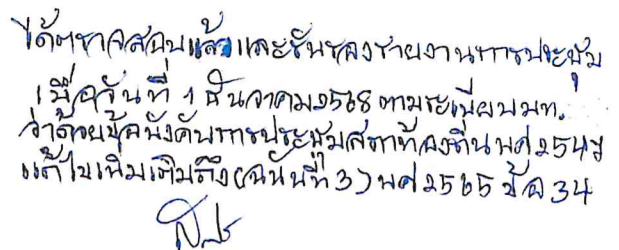 ได้ตรวจสอบแล้ว และรับรองรายงานการประชุม
เมื่อวันที่ 1 ธันวาคม 2568 ตามระเบียบ มท.
ว่าด้วยข้อบังคับการประชุมสภาท้องถิ่น พศ 2547
แก้ไขเพิ่มเติมถึง (ฉบับที่ 3) พศ 2565 ข้อ 34